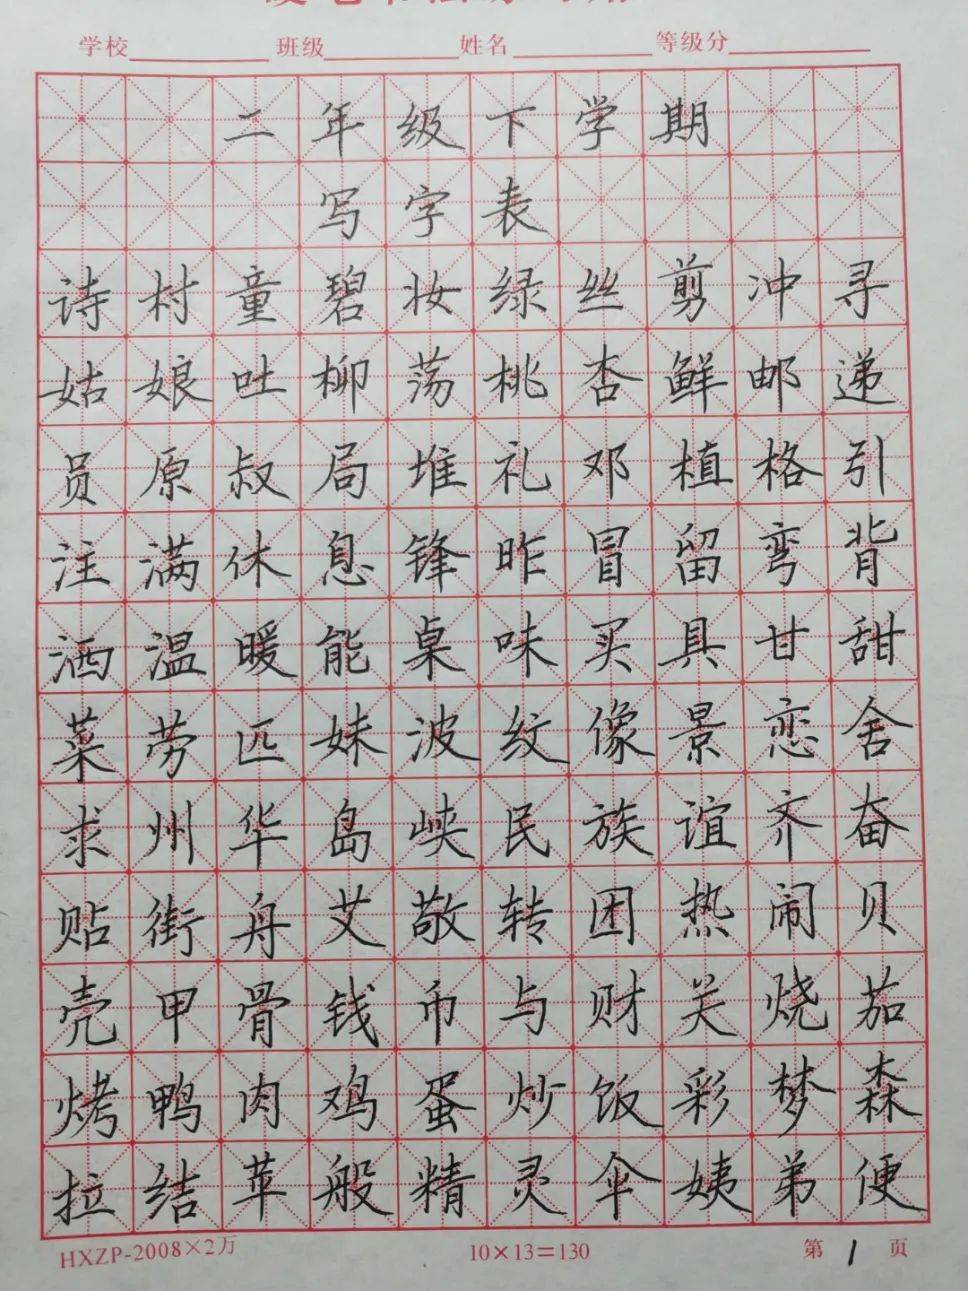 学校 班级 姓名 等级分
二年级下学期
写字表
诗村童碧妆绿丝剪冲寻
姑娘吐柳荡桃杏鲜邮递
员原叔局堆礼邓植格引
注满休息锋昨冒留弯背
洒温暖能桌味买具甘甜
菜劳匹妹波纹像景恋舍
求州华岛峡民族谊齐奋
贴街舟艾敬转团热闹贝
壳甲骨钱币与财关烧茄
烤鸭肉鸡蛋炒饭彩梦森
拉结苹般精灵伞姨弟便
HXZP-2008×2万 10×13=130 第 1 页